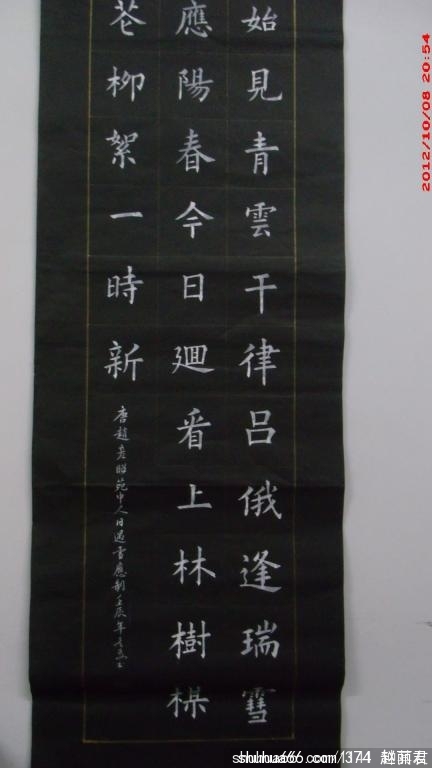 始見青雲干律呂俄逢瑞雪
應陽春今日迴看上林樹楳
芲柳絮一時新
唐趙彥昭苑中人日遇雪應制壬辰年
2012/10/08 20:54